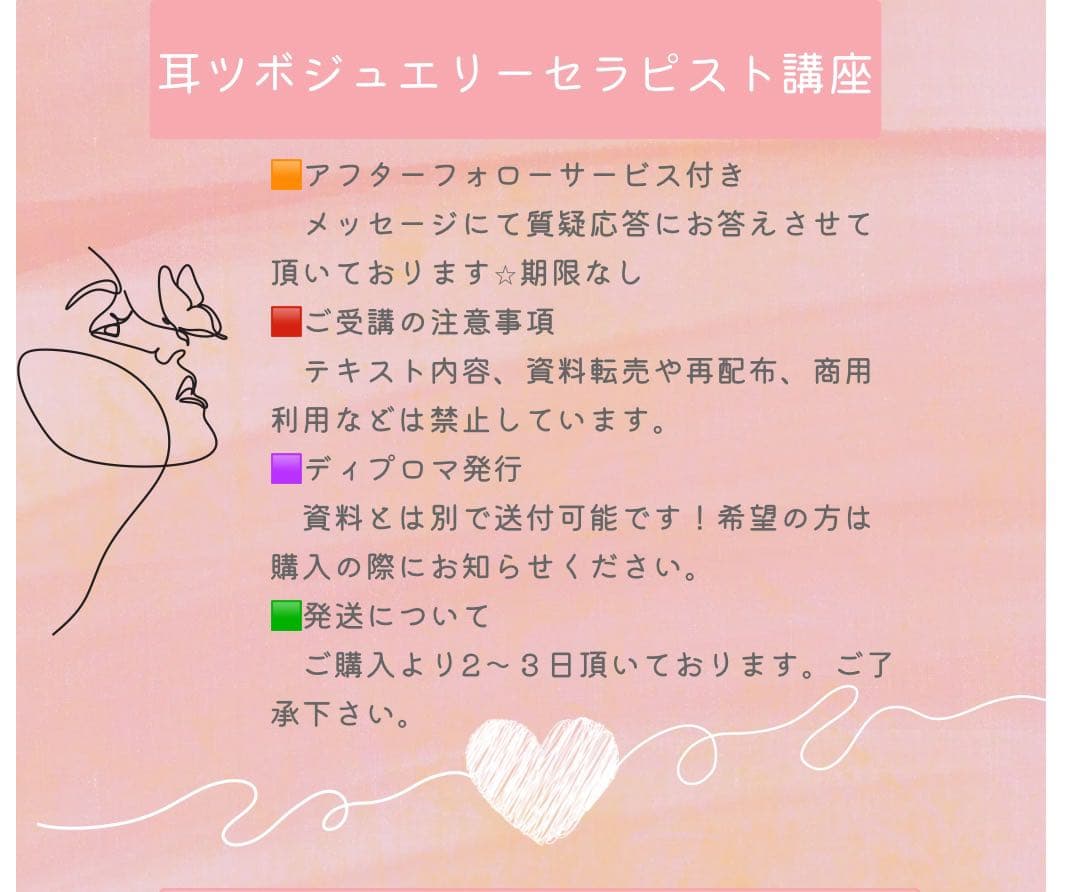 耳ツボジュエリーセラピスト講座
🟧アフターフォローサービス付き
　メッセージにて質疑応答にお答えさせて
頂いております☆期限なし
🟥ご受講の注意事項
　テキスト内容、資料転売や再配布、商用
利用などは禁止しています。
🟪ディプロマ発行
　資料とは別で送付可能です！希望の方は
購入の際にお知らせください。
🟩発送について
　ご購入より2〜３日頂いております。ご了
承下さい。